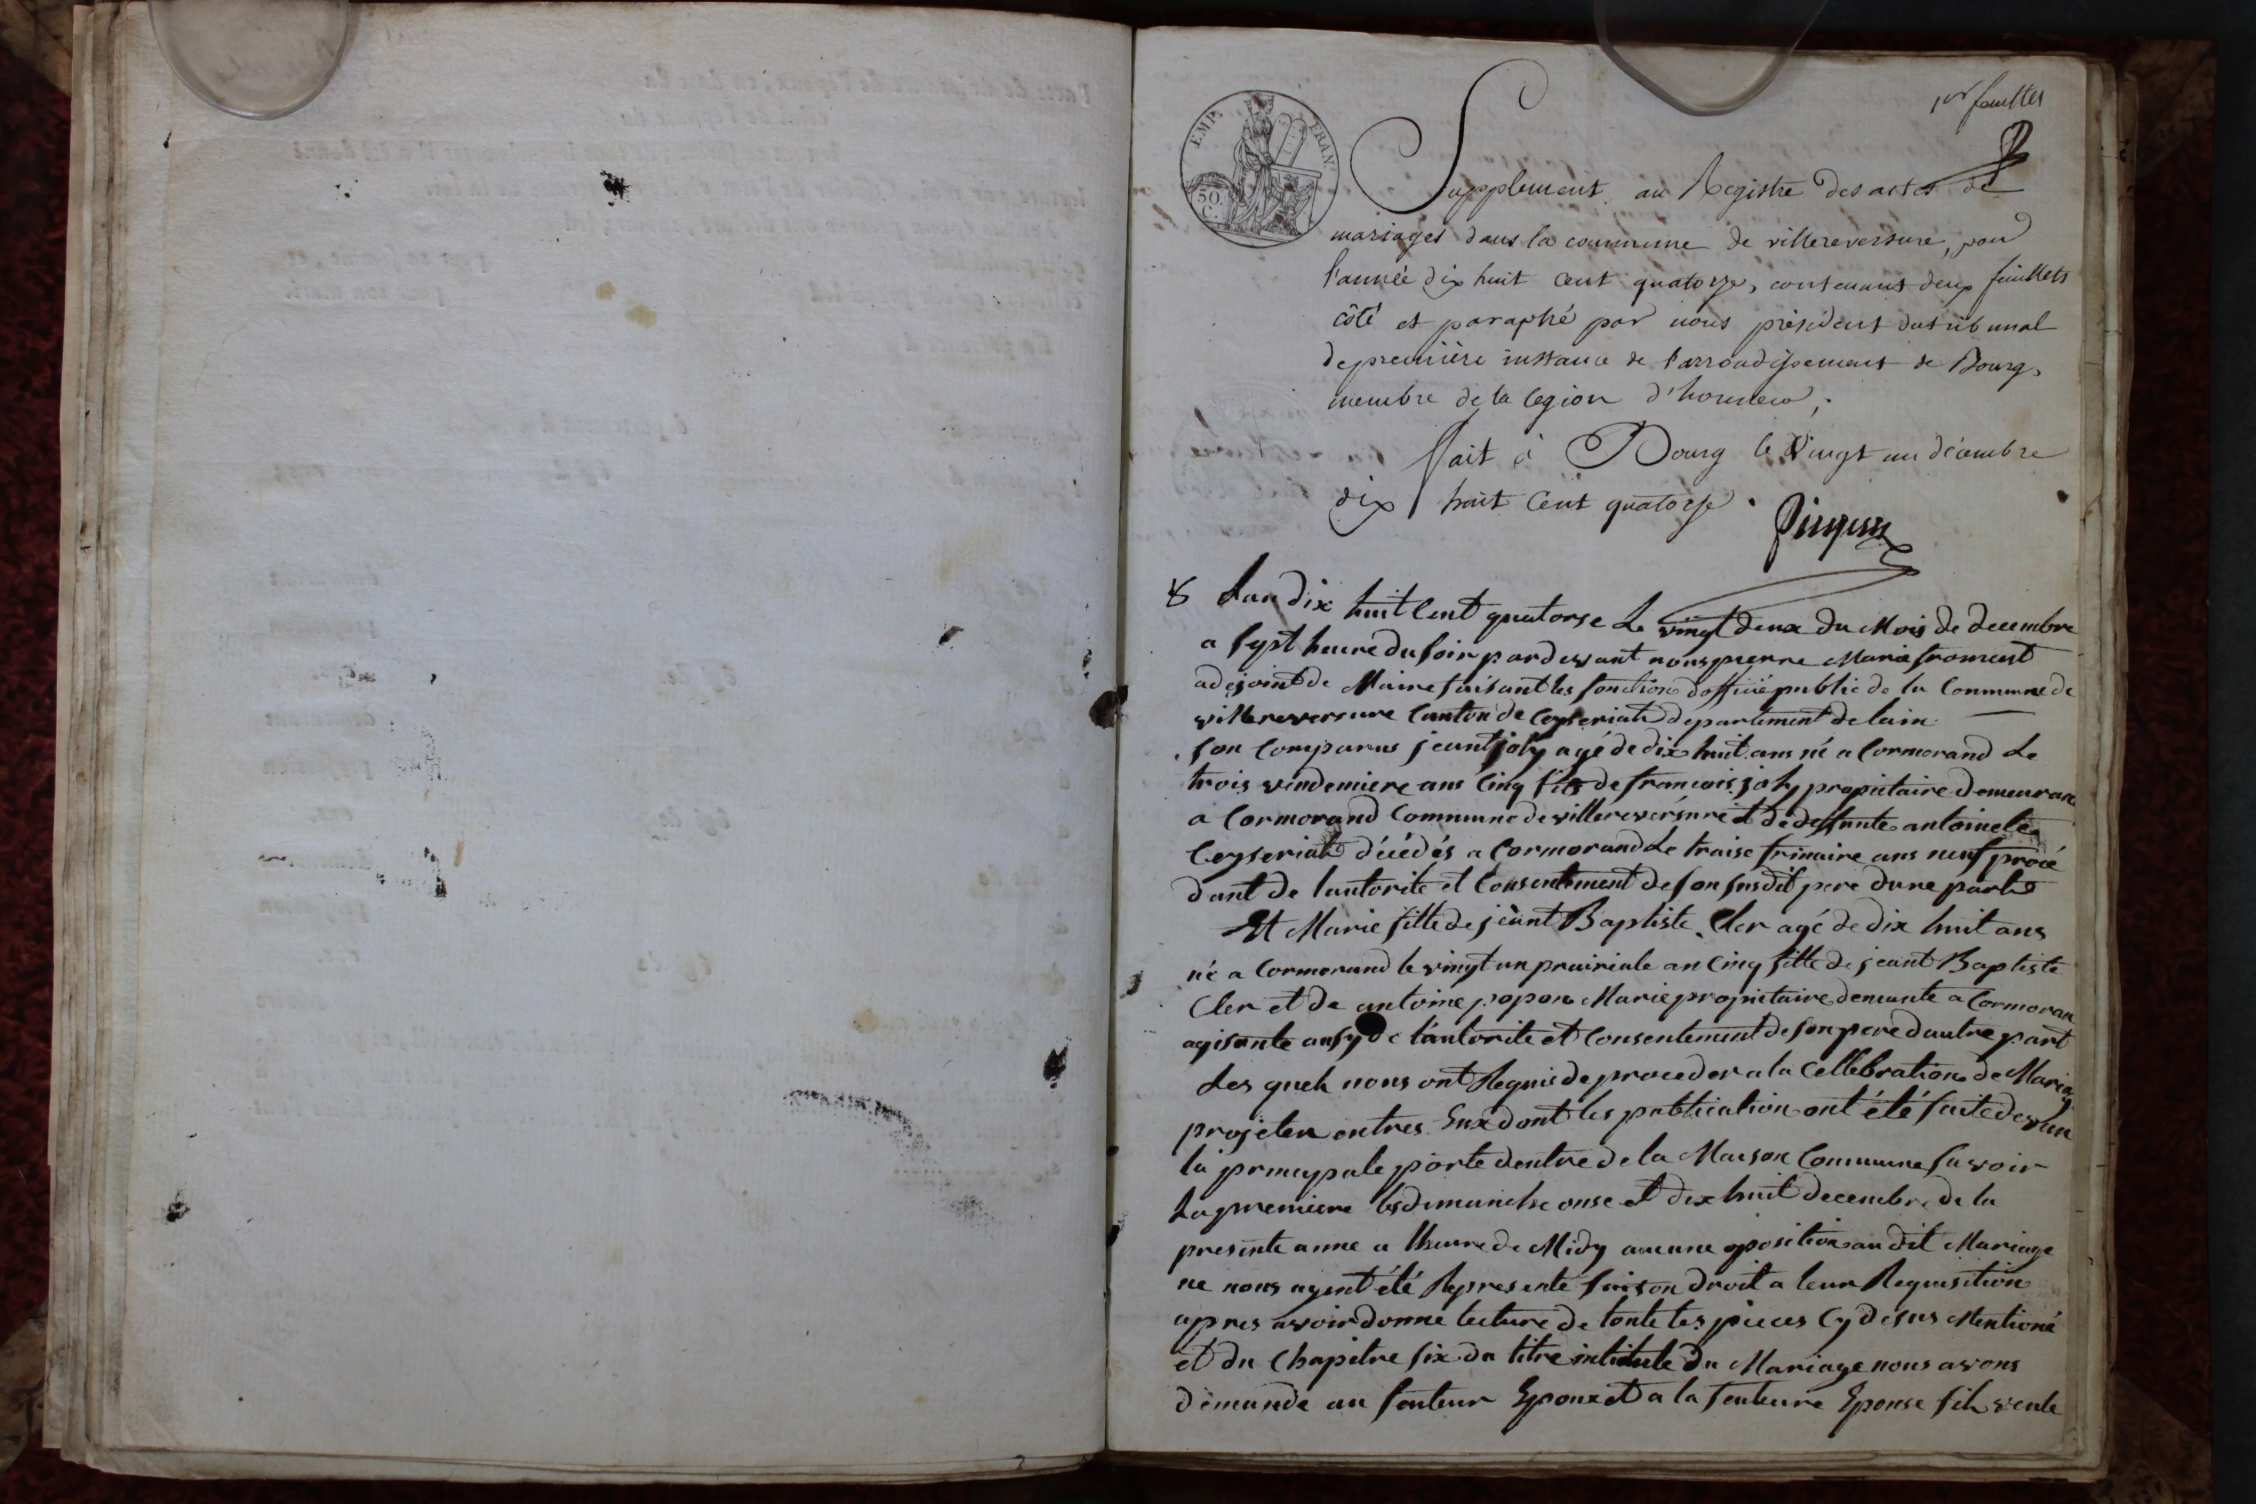 1er feuillet
EMP. FRAN.
50. C.
Supplement au Registre des actes de
mariages dans la commune de villereversure, pour
l'année dix huit cent quatorze, contenant deux feuillets
côté et paraphé par nous président du tribunal
de première instance de l'arrondissement de Bourg,
membre de la legion d'honneur,
fait à Bourg le vingt un décembre
dix huit cent quatorze.
8 Lan dix huit cent quatorse Le vingt deux du Mois de decembre
a sept heure du soir pardevant nous pierre Marie froment
adejoint de Maire faisant les fonction doffitié public de la Commune de
villereversure Canton de Ceyseriat departement de lain
son comparus jeant joly agé de dix huit ans né a Cormorand Le
trois vendemiere ans Cinq fils de francois joly propietaire demeuran
a Cormorand Commune de villereversure et de deffunte antoinete
Ceyseriat décédés a Cormorand Le traise frimaire ans neuf procé
dant de lautorité et Consentement de son susdit pere dune parte
Et Marie fille de jeant Baptiste Cler agé de dix huit ans
né a Cormorand le vingt un prairiale an Cinq fille de jeant Baptiste
Cler et de antoine popon Marie propietaire demeurante a Cormoran
agisante ausy de lautorite et Consentement de son pere dautre part
Les quels nous ont Requis de proceder a la Cellebration de Mariag
projeter entres Eux dont les publication ont été faite devan
la principale porte dentre de la Maison Commune savoir
La premiere les dimanche onse et dix huit decembre de la
presente anne a lheure de Midy aucune oposition au dit Mariage
ne nous ayent été Representé faison droit a leur Requisition
apres avoir donne lecture de toute les pieces Cy desus Mentioné
et du Chapitre six du titre intitule du Mariage nous avons
demande au futeur Epoux et a la futeure Epouse sils veule